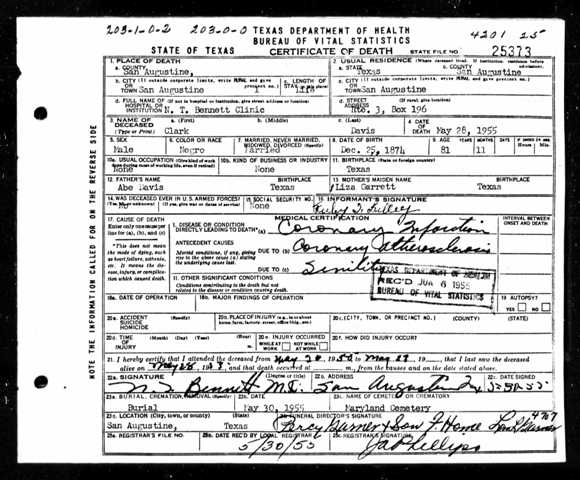 203-1-0-2 203-0-0 TEXAS DEPARTMENT OF HEALTH 4201 25
BUREAU OF VITAL STATISTICS
STATE OF TEXAS CERTIFICATE OF DEATH STATE FILE NO. 25373
1. PLACE OF DEATH 2. USUAL RESIDENCE (Where deceased lived. If institution, residence before admission)
a. COUNTY San Augustine, a. STATE Texas b. COUNTY San Augustine,
b. CITY (If outside corporate limits, write RURAL and give precinct no.) c. LENGTH OF STAY c. CITY (If outside corporate limits, write RURAL and give precinct no.)
OR TOWN San Augustine Life OR TOWN San Augustine
d. FULL NAME OF (If not in hospital or institution, give street address or location) d. STREET ADDRESS (If rural, give location)
HOSPITAL OR INSTITUTION N. T. Bennett Clinic Rte. 3, Box 196
3. NAME OF DECEASED a. (First) b. (Middle) c. (Last) 4. DATE OF DEATH
(Type or Print) Clark Davis May 28, 1955
5. SEX 6. COLOR OR RACE 7. MARRIED, NEVER MARRIED, WIDOWED, DIVORCED (Specify) 8. DATE OF BIRTH 9. AGE YEARS MONTHS DAYS
Male Negro Married Dec. 25, 1874 81 11
10a. USUAL OCCUPATION (Give kind of work done most of working life, even if retired) 10b. KIND OF BUSINESS OR INDUSTRY 11. BIRTHPLACE (State or foreign country)
None None Texas
12. FATHER'S NAME BIRTHPLACE 13. MOTHER'S MAIDEN NAME BIRTHPLACE
Abe Davis Texas Liza Garrett Texas
14. WAS DECEASED EVER IN U.S. ARMED FORCES? 15. SOCIAL SECURITY NO. 16. INFORMANT'S SIGNATURE
(If yes, give war or dates of service) None
17. CAUSE OF DEATH MEDICAL CERTIFICATION INTERVAL BETWEEN ONSET AND DEATH
Enter only one cause per line for (a), (b), and (c)
I. DISEASE OR CONDITION DIRECTLY LEADING TO DEATH* (a) Coronary Infarction
*This does not mean the mode of dying, such as heart failure, asthenia, etc. It means the disease, injury, or complication which caused death.
ANTECEDENT CAUSES
Morbid conditions, if any, giving rise to the above cause (a) stating the underlying cause last.
DUE TO (b) Coronary atherosclerosis
DUE TO (c)
TEXAS DEPARTMENT OF HEALTH
REC'D JUN 6 1955
BUREAU OF VITAL STATISTICS
II. OTHER SIGNIFICANT CONDITIONS
Conditions contributing to the death but not related to the disease or condition causing death.
18a. DATE OF OPERATION 18b. MAJOR FINDINGS OF OPERATION 19. AUTOPSY?
YES NO
20a. ACCIDENT SUICIDE HOMICIDE (Specify) 20b. PLACE OF INJURY (e.g. in or about home, farm, factory, street, office bldg., etc.) 20c. (CITY, TOWN, OR PRECINCT NO.) (COUNTY) (STATE)
20d. TIME OF INJURY (Month) (Day) (Year) (Hour) 20e. INJURY OCCURRED 20f. HOW DID INJURY OCCUR?
WHILE AT WORK NOT WHILE AT WORK
21. I hereby certify that I attended the deceased from May 28 to May 28, 19, that I last saw the deceased
alive on May 28, and that death occurred at m., from the causes and on the date stated above.
22a. SIGNATURE (Degree or title) 22b. ADDRESS 22c. DATE SIGNED
N. T. Bennett M.D. San Augustine Tex
23a. BURIAL, CREMATION, REMOVAL (Specify) 23b. DATE 23c. NAME OF CEMETERY OR CREMATORY
Burial May 30, 1955 Maryland Cemetery
23d. LOCATION (City, town, or county) (State) 24. FUNERAL DIRECTOR'S SIGNATURE 4707
San Augustine, Texas Percy Garner & Son F. Home
25a. REGISTRAR'S FILE NO. 25b. DATE REC'D BY LOCAL REGISTRAR 25c. REGISTRAR'S SIGNATURE
5/30/55 Phillips
NOTE THE INFORMATION CALLED FOR ON THE REVERSE SIDE